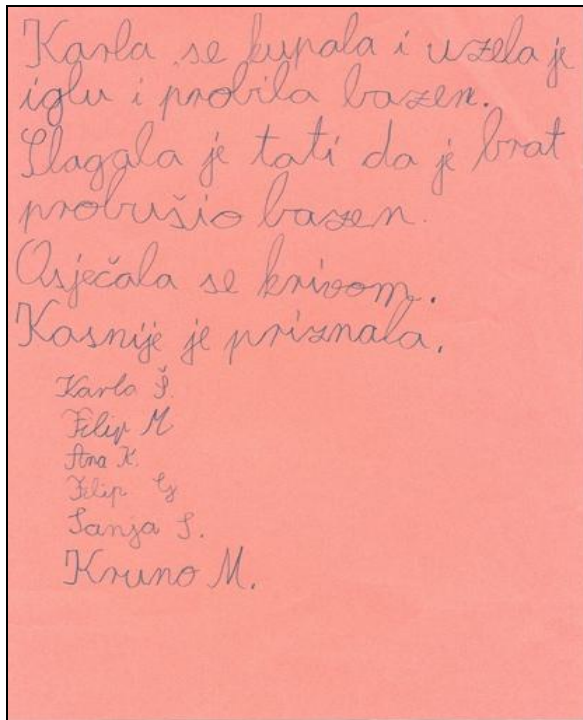 Karla se kupala i uzela je
iglu i probila bazen.
Slagala je tati da je brat
probušio bazen.
Osječala se krivom.
Kasnije je priznala.
Karla Š.
Filip M
Ana K.
Filip G
Sanja S.
Kruno M.